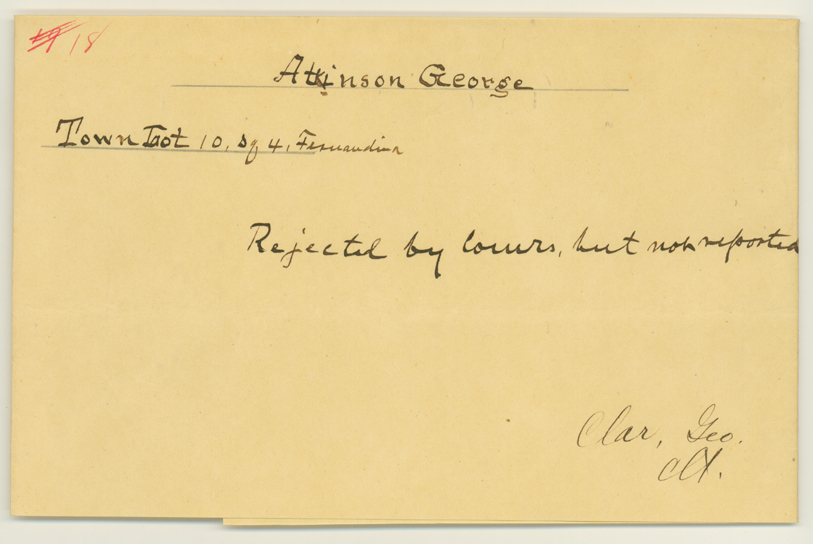 18
Atkinson George
Town Lot 10, Sq 4, Fernandina
Rejected by comrs, but not reported
Clar, Geo.